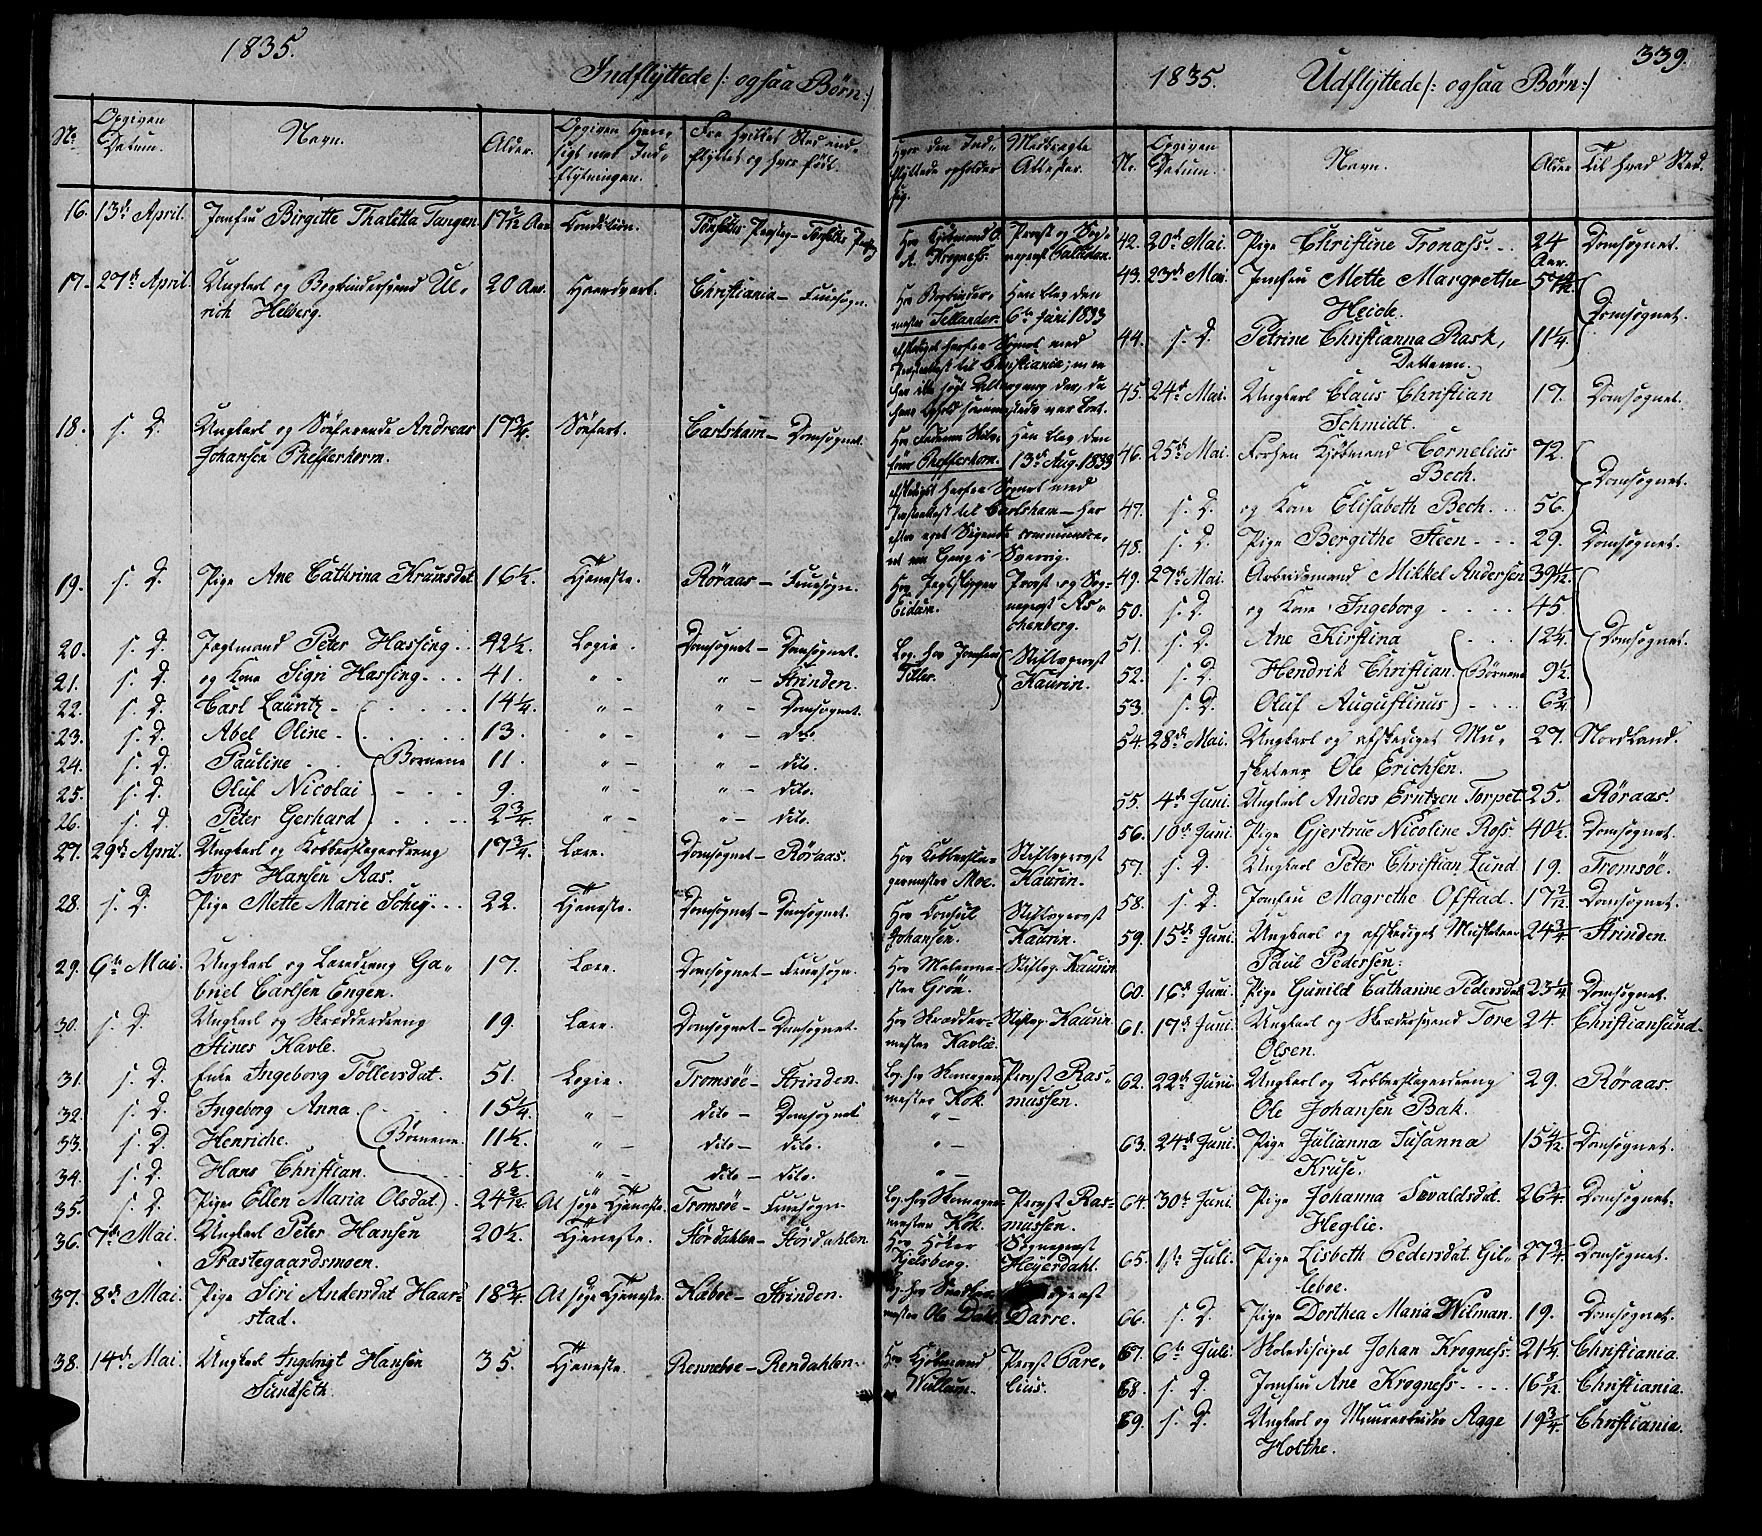 1835.
Indflÿttede /: ogsaa Børn :/
No
Opgiven Datum.
Navn.
Alder.
Opgiven Hensigt med Indflÿtningen.
Fra hvilket Sted indflÿttet og hvor født.
Hvor den Indflÿttede opholder sig.
Medbragte Attester.
16. 13de April. Jomfru Birgitte Thaletta Tangen 17 2/12 Aar Condition.
17. 27de April. Ungkarl og Bogbindersvend Ulrich Helberg. 20 Aar. Haandværk. Christiania – Fruesogn. Hos Bogbindermester Sellander. Han blev den 6te Juni 1833
18. s. D. Ungkarl og Søfarende Andreas Johansen Pheffer 17 3/4. Søfart. Carlsham – Domsognet. 13de Aug. 1833
19. s. D. Pige Ane Cathrina 16 1/2. Tjeneste. Røraas – Fruesogn. Provst og Sognepræst Aschenberg.
20. s. D. Jagtmand Peter Hassing. 42 1/2. Logie. Domsognet – Domsognet. Log. hos Jomfru Tiller. Stiftsprovst Kaurin.
21. s. D. og Kone Sigri Hassing. . . 41. " – " – Strinden.
22. s. D. Carl Lauritz – 14 1/4. " – " – Domsognet.
23. s. D. Abel Oline – 13. " – " – dito.
24. s. D. Pauline – Børnene 11. " – " – dito.
25. s. D. Oluf Nicolai 9. " – " – dito.
26. s. D. Peter Gerhard 2 3/4. " – " – dito.
27. 29de April. Ungkarl og Kobberslagerdreng Iver Hansen Aas. 17 3/4. Lære. Domsognet – Røraas. Hos Kobberslagermester Moe. Stiftsprovst Kaurin.
28. s. D. Pige Mette Marie Scheÿ. . . 22. Tjeneste. Domsognet – Domsognet. Hos Konsul Johansen. Stiftsprovst Kaurin.
29. 6te Mai. Ungkarl og Læredreng Gabriel Carlsen Engen. 17. Lære. Domsognet – Fruesogn. Hos Malermester Grøn. Stiftsp. Kaurin.
30. s. D. Ungkarl og Skrædderdreng Stines Kavle. 19. Lære. Domsognet – Domsognet. Hos Skræddermester Kavlie. Stiftsp. Kaurin.
31. s. D. Enke Ingeborg Tollersdat. 51. Logie. Tromsøe – Strinden. Log. hos Skomagermester Kok. Provst Rasmussen.
32. s. D. Ingeborg Anna. 15 1/4. " – dito – Domsognet. " –
33. s. D. Henriche. Børnene. 11 1/2. " – dito – dito. " –
34. s. D. Hans Christian. 8 1/2. " – dito – dito. " –
35. s. D. Pige Ellen Maria Olsdat. 24 At søge Tjeneste. Tromsøe – Fruesogn. Log. hos Skomagermester Kok. Provst Rasmussen.
36. 7de Mai. Ungkarl Peter Hansen Præstegaardsmoen. 20 1/2. Tjeneste. Størdahlen – Størdahlen. Hos Høker Kjelsberg. Sognepræst Heyerdahl.
37. 8de Mai. Pige Siri Andersdat Haarstad. 18 3/4. At søge Tjeneste. Kæboe – Strinden. Darre.
38. 14de Mai. Ungkarl Ingebrigt Hansen Sundseth. 35. Tjeneste. Renneboe – Rendahlen. Hos Kjøbmand Wullum. Provst Parelius.
339.
1835.
Udflÿttede /: ogsaa Børn :/
Nr.
Opgiven Datum.
Navn.
Alder
Til hvad Sted.
42. 20de Mai. Pige Christine Tronæss. . . 24 Aar. Domsognet.
43. 23de Mai. Jomfru Mette Margrethe Heide. Domsognet.
44. s. D. Petrine Christianna Rask, Datteren. 11 1/4.
45. 24de Mai. Ungkarl Claus Christian Schmidt. 17. Domsognet.
46. 25de Mai. Forhen Kjøbmand Cornelius Bech. 72. Domsognet.
47. s. D. og Kone Elisabeth Bech. . . 56.
48. s. D. Pige Bergithe Steen – – . 29. Domsognet.
49. 27de Mai. Arbeidsmand Mikkel Andersen 39 1/2.
50. s. D. og Kone Ingeborg . . . . 45.
51. s. D. Ane Kirstina . . . 12 1/4. Domsognet.
52. s. D. Hendrik Christian. Børnene 9 1/2.
53. s. D. Oluf Augustinus 6 3/4.
54. 28de Mai. Ungkarl og afskediget Musketeer Ole Erichsen. 27. Nordland.
55. 4de Juni. Ungkarl Anders Erntzen Torpet 25. Røraas.
56. 10de Juni. Pige Gjertrue Nicoline Ross. 40 1/2. Domsognet.
57. s. D. Ungkarl Peter Christian Lund. 19. Tromsøe.
58. s. D. Jomfru Magrethe Offstad. 17 2/12. Domsognet.
59. 15de Juni. Ungkarl og afskediget Musketeer Paul Pedersen. 24 3/4. Strinden.
60. 16de Juni. Pige Gunild Catharine Pedersdat 23 1/4. Domsognet.
61. 17de Juni. Ungkarl og Skrædersvend Tore Olsen. 24. Christiansund.
62. 22de Juni. Ungkarl og Kobberslagerdreng Ole Johansen Bak. 29. Røraas.
63. 24de Juni. Pige Julianna Susanna Kruse. 15 4/12. Domsognet.
64. 30te Juni. Pige Johanna Sevaldsdat. Heglie. 26 3/4. Domsognet.
65. 1ste Juli. Pige Lisbeth Pedersdat. Gilleboe. 27 3/4. Domsognet.
66. s. D. Pige Dorthea Maria Wilman. 19. Domsognet.
67. 6te Juli. Skolediscipel Johan Krogness. 21 1/4. Christiania.
68. s. D. Jomfru Ane Krogness. . . 16 8/12. Christiania.
69. s. D. Ungkarl og Muurarbeider Agge Holthe. 19 3/4. Christiania.